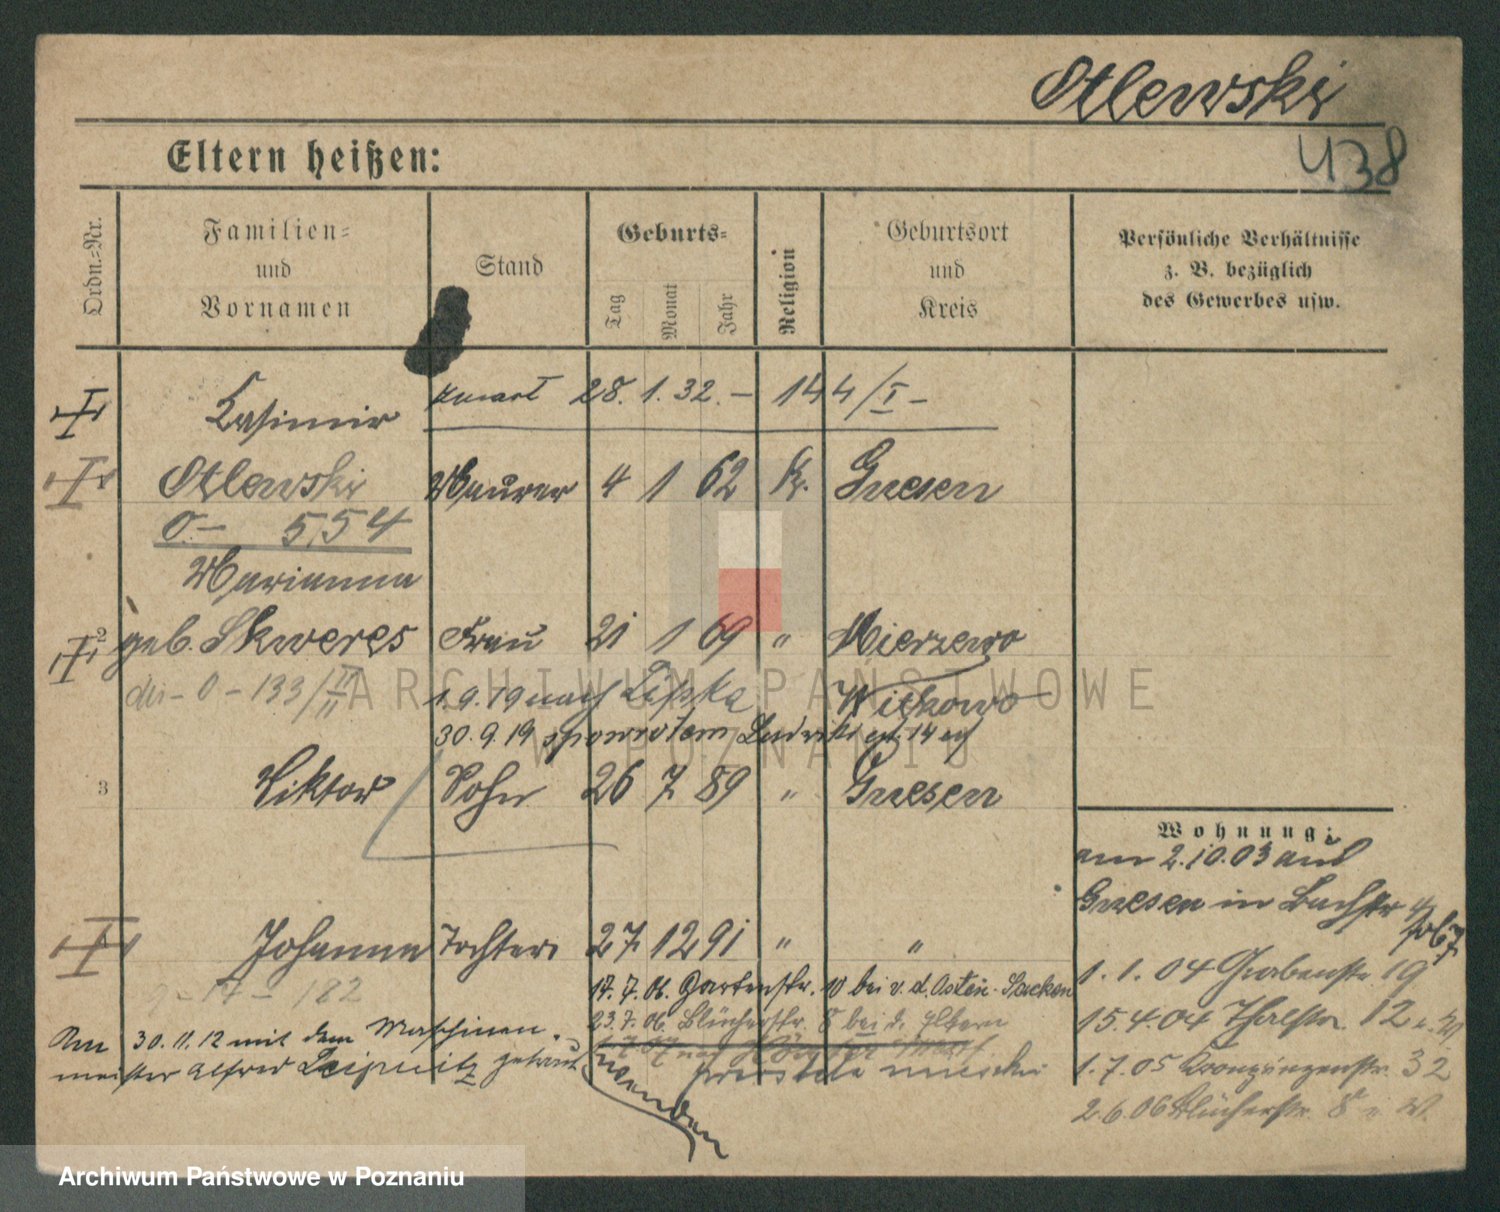 Otlewski
438
Eltern heißen:
Ordn.-Nr.
Familien- und Vornamen
Stand
Geburts-
Tag
Monat
Jahr
Religion
Geburtsort und Kreis
Persönliche Verhältnisse z. B. bezüglich des Gewerbes usw.
Kasimir
zmarł 28. 1. 32. – 144/I –
Otlewski Maurer 4 1 62 k. Gnesen
O.– 554
Marianna
2 geb. Skweres Frau 21 1 69 " Mierzewo
dis – O – 133/II
1.9.19 nach Lipka Witkowo
30.9.19 spowrotem
3 Viktor Sohn 26 7 89 " Gnesen
Wohnung:
am 2.10.03 aus
Gnesen in Bachstr 4
Johanna Tochter 27 12 91 " "
1.1.04 Grabenstr. 19
17.7.06. Gartenstr. 10 bei v. d. Osten-Sacken
182
23.7.06. Blücherstr. 8 bei d. Eltern
15.4.04 Thalstr. 12
Am 30.11.12 mit dem Maschinen-
meister Alfred Leipnitz getraut
wenden
1.7.05 Kronprinzenstr. 32
2.6.06 Blücherstr. 8
ARCHIWUM PAŃSTWOWE
W POZNANIU
Archiwum Państwowe w Poznaniu